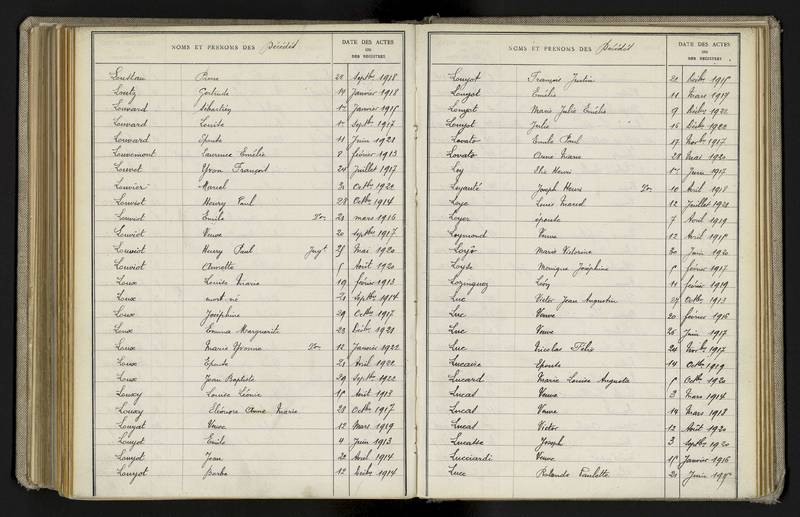 NOMS ET PRENOMS DES Décédés
DATE DES ACTES
OU
DES REGISTRES
Loustau Pierre Septbre 1918
Loutz Gertrude 11 Janvier 1918
Louvard Sébastien Janvier
Louvard Louise Septbre 1917
Louvard Epouse 11 Juin 1921
Louvemont Laurence Emélie 8 février 1913
Louvet Yvon François 24 Juillet 1917
Louvier Marcel Octbre 1920
Louviot Henry Paul 28 Octbre 1914
Louviot Emile 23 mars 1916
Louviot Veuve 20 Septbre 1917
Louviot Henry Paul Jugt Mai 1920
Louviot Annette Août 1920
Loux Louise Marie 19 février 1913
Loux mort né 21 Septbre 1914
Loux Joséphine 29 Octbre 1917
Loux Emma Marguerite 23 1921
Loux Marie Yvonne 12 Janvier 1922
Loux Epouse 21 Avril 1922
Loux Jean Baptiste 29 Septbre 1922
Louxy Louise Léonie Août 1913
Louxy Eléonore Anne Marie 28 Octbre 1917
Louyat Veuve 12 Mars 1919
Louyot Emile 4 Juin 1913
Louyot Jean 20 Avril 1914
Louyot Barbe 12 1914
NOMS ET PRENOMS DES Décédés
DATE DES ACTES
OU
DES REGISTRES
Louyot François Justin
Louyot Emélie 11 Mars 1917
Louyot Marie Julie Emélie 9
Louyot Julie 16 Décbre 1920
Lovato Emile Paul 17 Novbre 1917
Lovato Anne Marie 28 Mai 1920
Loy Henri Juin 1917
Loyauté Joseph Henri 10 Avril 1918
Loye Louis Marcel 12 Juillet 1921
Loyer épouse 7 Avril 1919
Loymond Veuve 12 Avril
Marie Victorine 30 Juin 1920
Loyse Monique Joséphine février 1917
Lozinguez 11 février 1919
Luc Victor Jean Augustin 27 Octbre 1913
Luc Veuve 20 février 1916
Luc Veuve 26 Juin 1917
Luc Nicolas Félix 20 Novbre 1917
Epouse 14 Octbre 1919
Lucard Marie Louise Augusta Octbre 1920
Lucas Veuve 3 Mars 1914
Lucas Veuve 14 Mars 1918
Lucas Victor 12 Août 1920
Joseph 3 Septbre 1920
Lucciardi Veuve Janvier 1916
Luce Rolande Paulette Juin